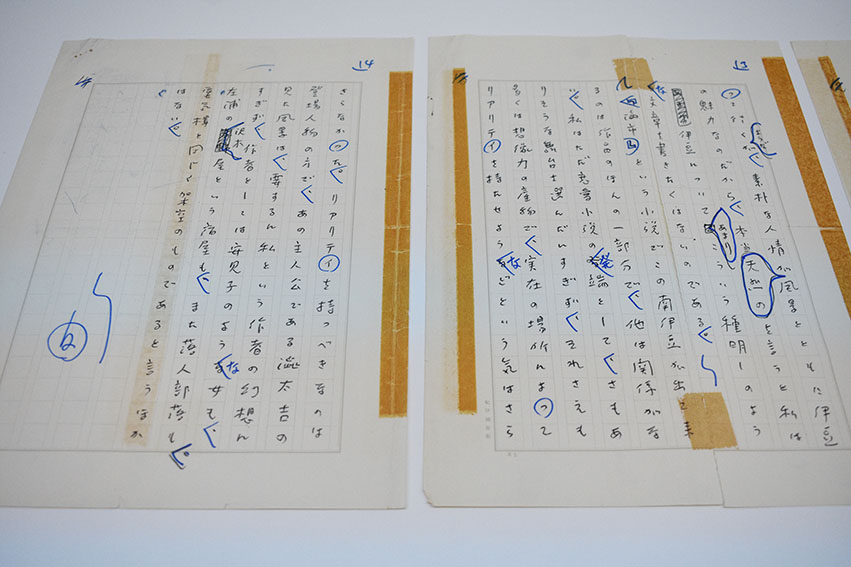 13
って行くが、素朴な人情が風景とともに伊豆
の魅力なのだから。本当のことを言うと私は
天然の
伊豆についてあまりこういう種明しのよう
な文章を書きたくはないのである。
「海市」という小説でこの南伊豆が出て来
るのは作品のほんの一部分で、他は関係がな
い。私はただ恋愛小説の発端として、さもあ
りそうな舞台を選んだにすぎず、それさえも
多くは想像力の産物で、実在の場所によって
リアリティを持たせようなどという気はさら
14
さらなかった。リアリティを持つべきなのは
登場人物の方で、あの主人公である澁太吉の
見た風景は、要するに私という作者の幻想に
すぎず、作者としては安見子のような女も、
左浦の伏木屋という宿屋も、また落人部落も、
蜃気楼と同じく架空のものであると言うほか
はない。